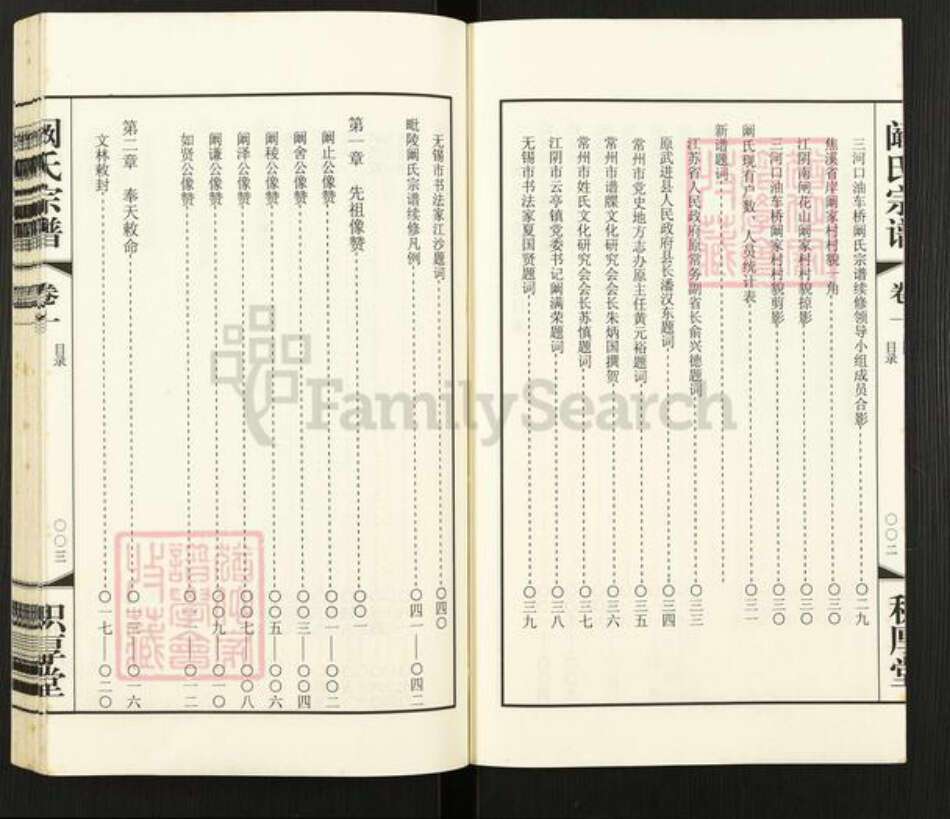 阚氏宗谱
卷一
目录
〇〇二
三河口油车桥阚氏宗谱续修领导小组成员合影 〇二九
焦溪省岸阚家村村貌一角 〇三〇
江阴南闸花山阚家村村貌掠影
三河口油车桥阚家村村貌剪影 〇三〇
阚氏现有户数、人员统计表 〇三一
新谱题词
江苏省人民政府原常务副省长俞兴德题词 〇三三
原武进县人民政府县长潘汉东题词 〇三四
常州市党史地方志办原主任黄元裕题词 〇三五
常州市谱牒文化研究会会长朱炳国撰贺 〇三六
常州市姓氏文化研究会会长苏慎题词 〇三七
江阴市云亭镇党委书记阚满荣题词 〇三八
无锡市书法家夏国贤题词 〇三九
无锡市书法家江沙题词 〇四〇
毗陵阚氏宗谱续修凡例 〇四一——〇四二
第一章 先祖像赞 〇〇一
阚止公像赞 〇〇一——〇〇二
阚舍公像赞 〇〇三——〇〇四
阚稜公像赞 〇〇五——〇〇六
阚泽公像赞 〇〇七——〇〇八
阚谦公像赞 〇〇九——〇一〇
如贤公像赞 〇一二
第二章 奉天敕命 〇一六
文林敕封 〇一七——〇二〇
阚氏宗谱
卷一
目录
〇〇三
FamilySearch